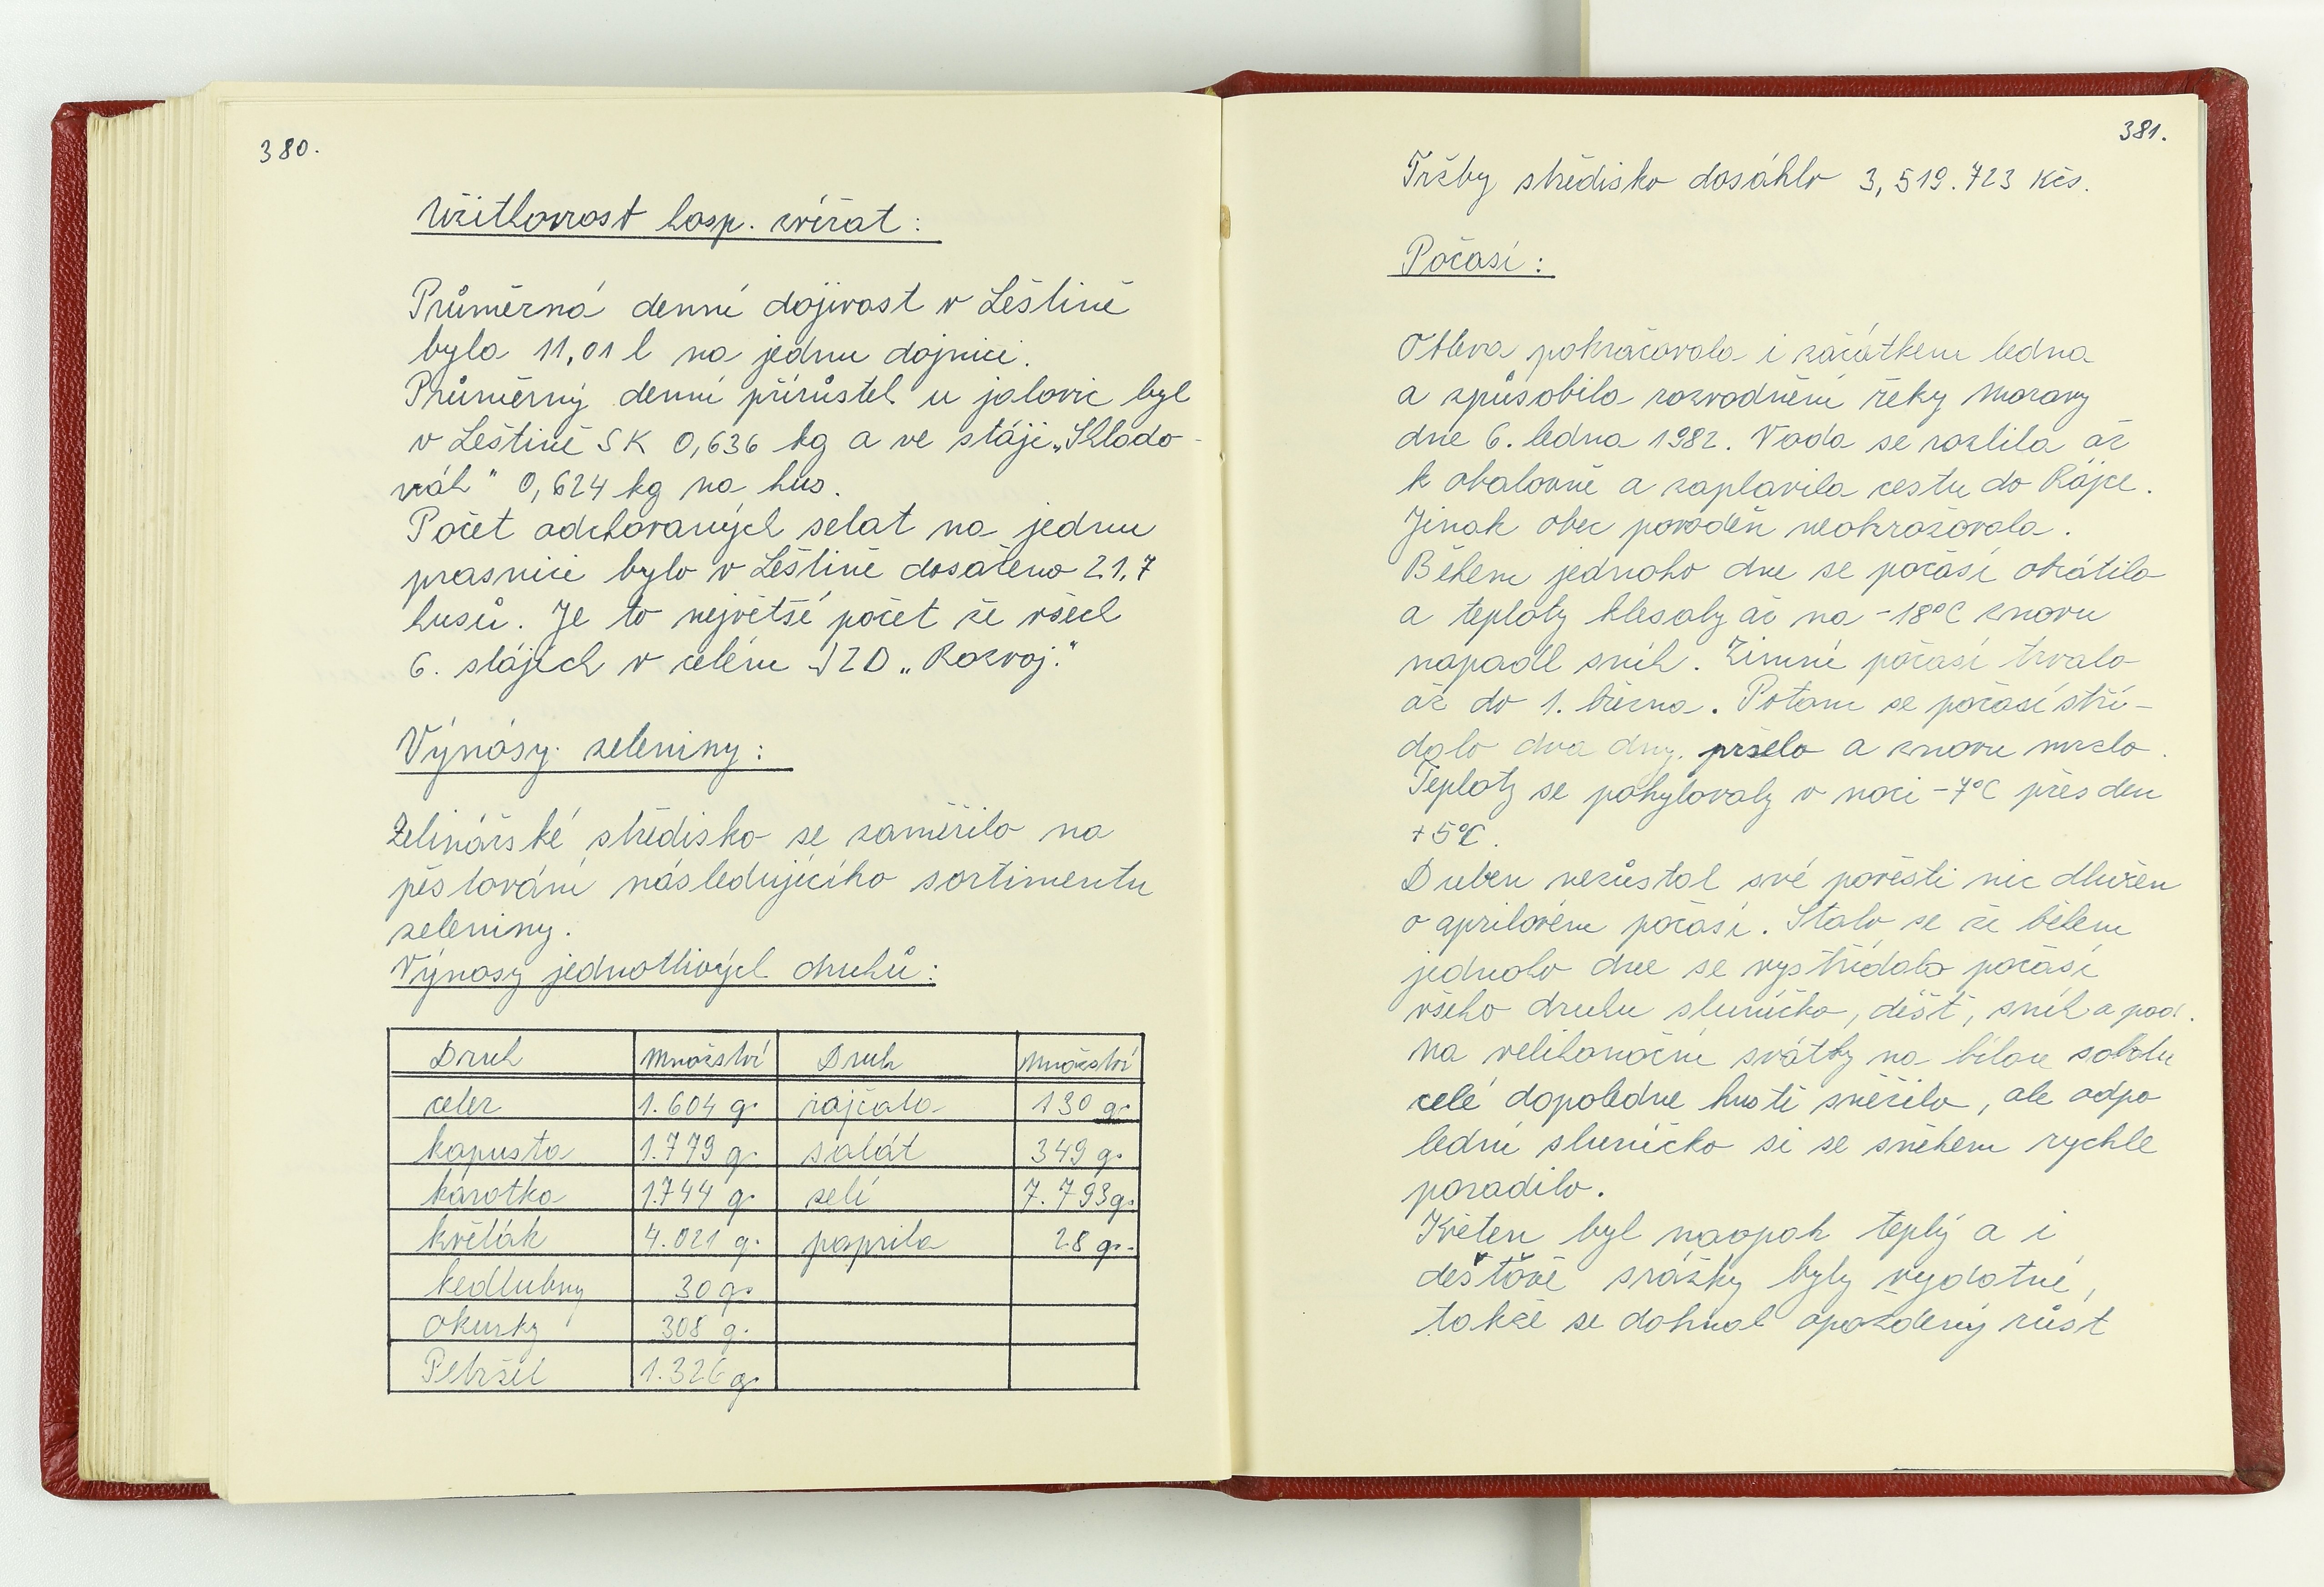 380.
Užitkovost hosp. zvířat:
Průměrná denní dojivost v Leštině
byla 11,01 l na jednu dojnici.
Průměrný denní přírůstek u jalovic byl
v Leštině SK 0,636 kg a ve stáji „Sklado-
vák" 0,624 kg na kus.
Počet odchovaných selat na jednu
prasnici bylo v Leštině dosaženo 21,7
kusů. Je to největší počet ze všech
6. stájích v celém JZD „Rozvoj."
Výnosy zeleniny:
Zelinářské středisko se zaměřilo na
pěstování následujícího sortimentu
zeleniny.
Výnosy jednotlivých druhů:
Druh Množství Druh Množství
celer 1.604 q. rajčata 130 q.
kapusta 1.779 q. salát 349 q.
karotka 1.744 q. zelí 7.793 q.
květák 4.021 q. paprika 28 q.
kedlubny 30 q.
okurky 308 q.
Petržel 1.326 q.
381.
Tržby středisko dosáhlo 3,519.723 Kčs.
Počasí:
Obleva pokračovala i začátkem ledna
a způsobila rozvodnění řeky Moravy
dne 6. ledna 1982. Voda se rozlila až
k obalovně a zaplavila cestu do Rájce.
Jinak obec povodeň neohrožovala.
Během jednoho dne se počasí obrátilo
a teploty klesaly až na -18°C znovu
napadl sníh. Zimní počasí trvalo
až do 1. března. Potom se počasí stří-
dalo dva dny pršelo a znovu mrzlo.
Teploty se pohybovaly v noci -7°C přes den
+5°C.
Duben nezůstal své pověsti nic dlužen
o aprilovém počasí. Stalo se že během
jednoho dne se vystřídalo počasí
všeho druhu sluníčko, déšť, sníh a pod.
Na velikonoční svátky na bílou sobotu
celé dopoledne hustě sněžilo, ale odpo
lední sluníčko si se sněhem rychle
poradilo.
Květen byl naopak teplý a i
dešťové srážky byly vydatné,
takže se dohnal opožděný růst